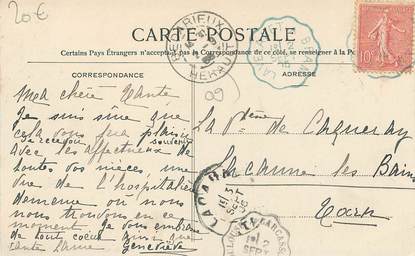 20€
CARTE POSTALE
Certains Pays Étrangers n'acceptant pas la Correspondance de ce côté, se renseigner à la Po
CORRESPONDANCE
ADRESSE
HÉRÉPIEUX
HÉRAULT
09
10
Ma chère Tante
Je suis sûre que
cela vous fera plaisir
d'accevoir souvenir
avec les affectueux de
toutes vos nièces, une
vue de l'hospitalière
demeure où nous
nous trouvons en ce
moment. Je vous embrasse
de tout cœur ainsi que
tante Laure Geneviève
La Vtesse de Cacqueray
Lacaune les Bains
Tarn
LACAUNE
3
SEPT
SEPT